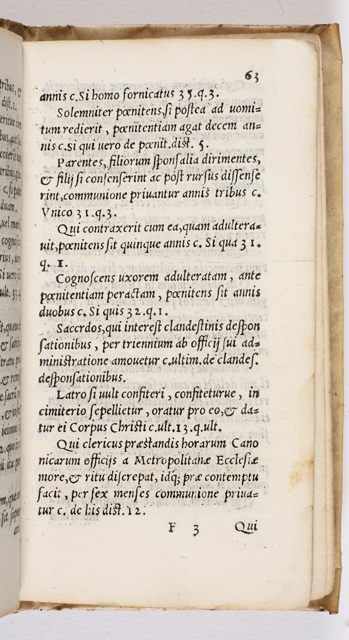 63
annis c. Si homo fornicatus 35.q.3.
Solemniter pœnitens,si postea ad uomi-
tum redierit, pœnitentiam agat decem an-
nis c. Si qui uero de pœnit.dist. 5.
Parentes, filiorum sponsalia dirimentes,
& filij si consenserint ac post rursus dissense
rint,communione priuantur annis tribus c.
Vnico 31.q.3.
Qui contraxerit cum ea,quam adultera-
uit,pœnitens sit quinque annis c. Si qua 31.
q. 1.
Cognoscens uxorem adulteratam, ante
pœnitentiam peractam, pœnitens sit annis
duobus c. Si quis 32.q.1.
Sacerdos,qui interest clandestinis despon
sationibus, per triennium ab officij sui ad-
ministratione amouetur c.ultim.de clandes.
desponsationibus.
Latro si uult confiteri, confiteturue, in
cimiterio sepellietur, oratur pro eo,& da-
tur ei Corpus Christi c.ult.13.q.ult.
Qui clericus præstandis horarum Cano
nicarum officijs a Metropolitanæ Ecclesiæ
more,& ritu discrepat, idq; præ contemptu
facit, per sex menses communione priua-
tur c. de his dist.12.
F 3 Qui